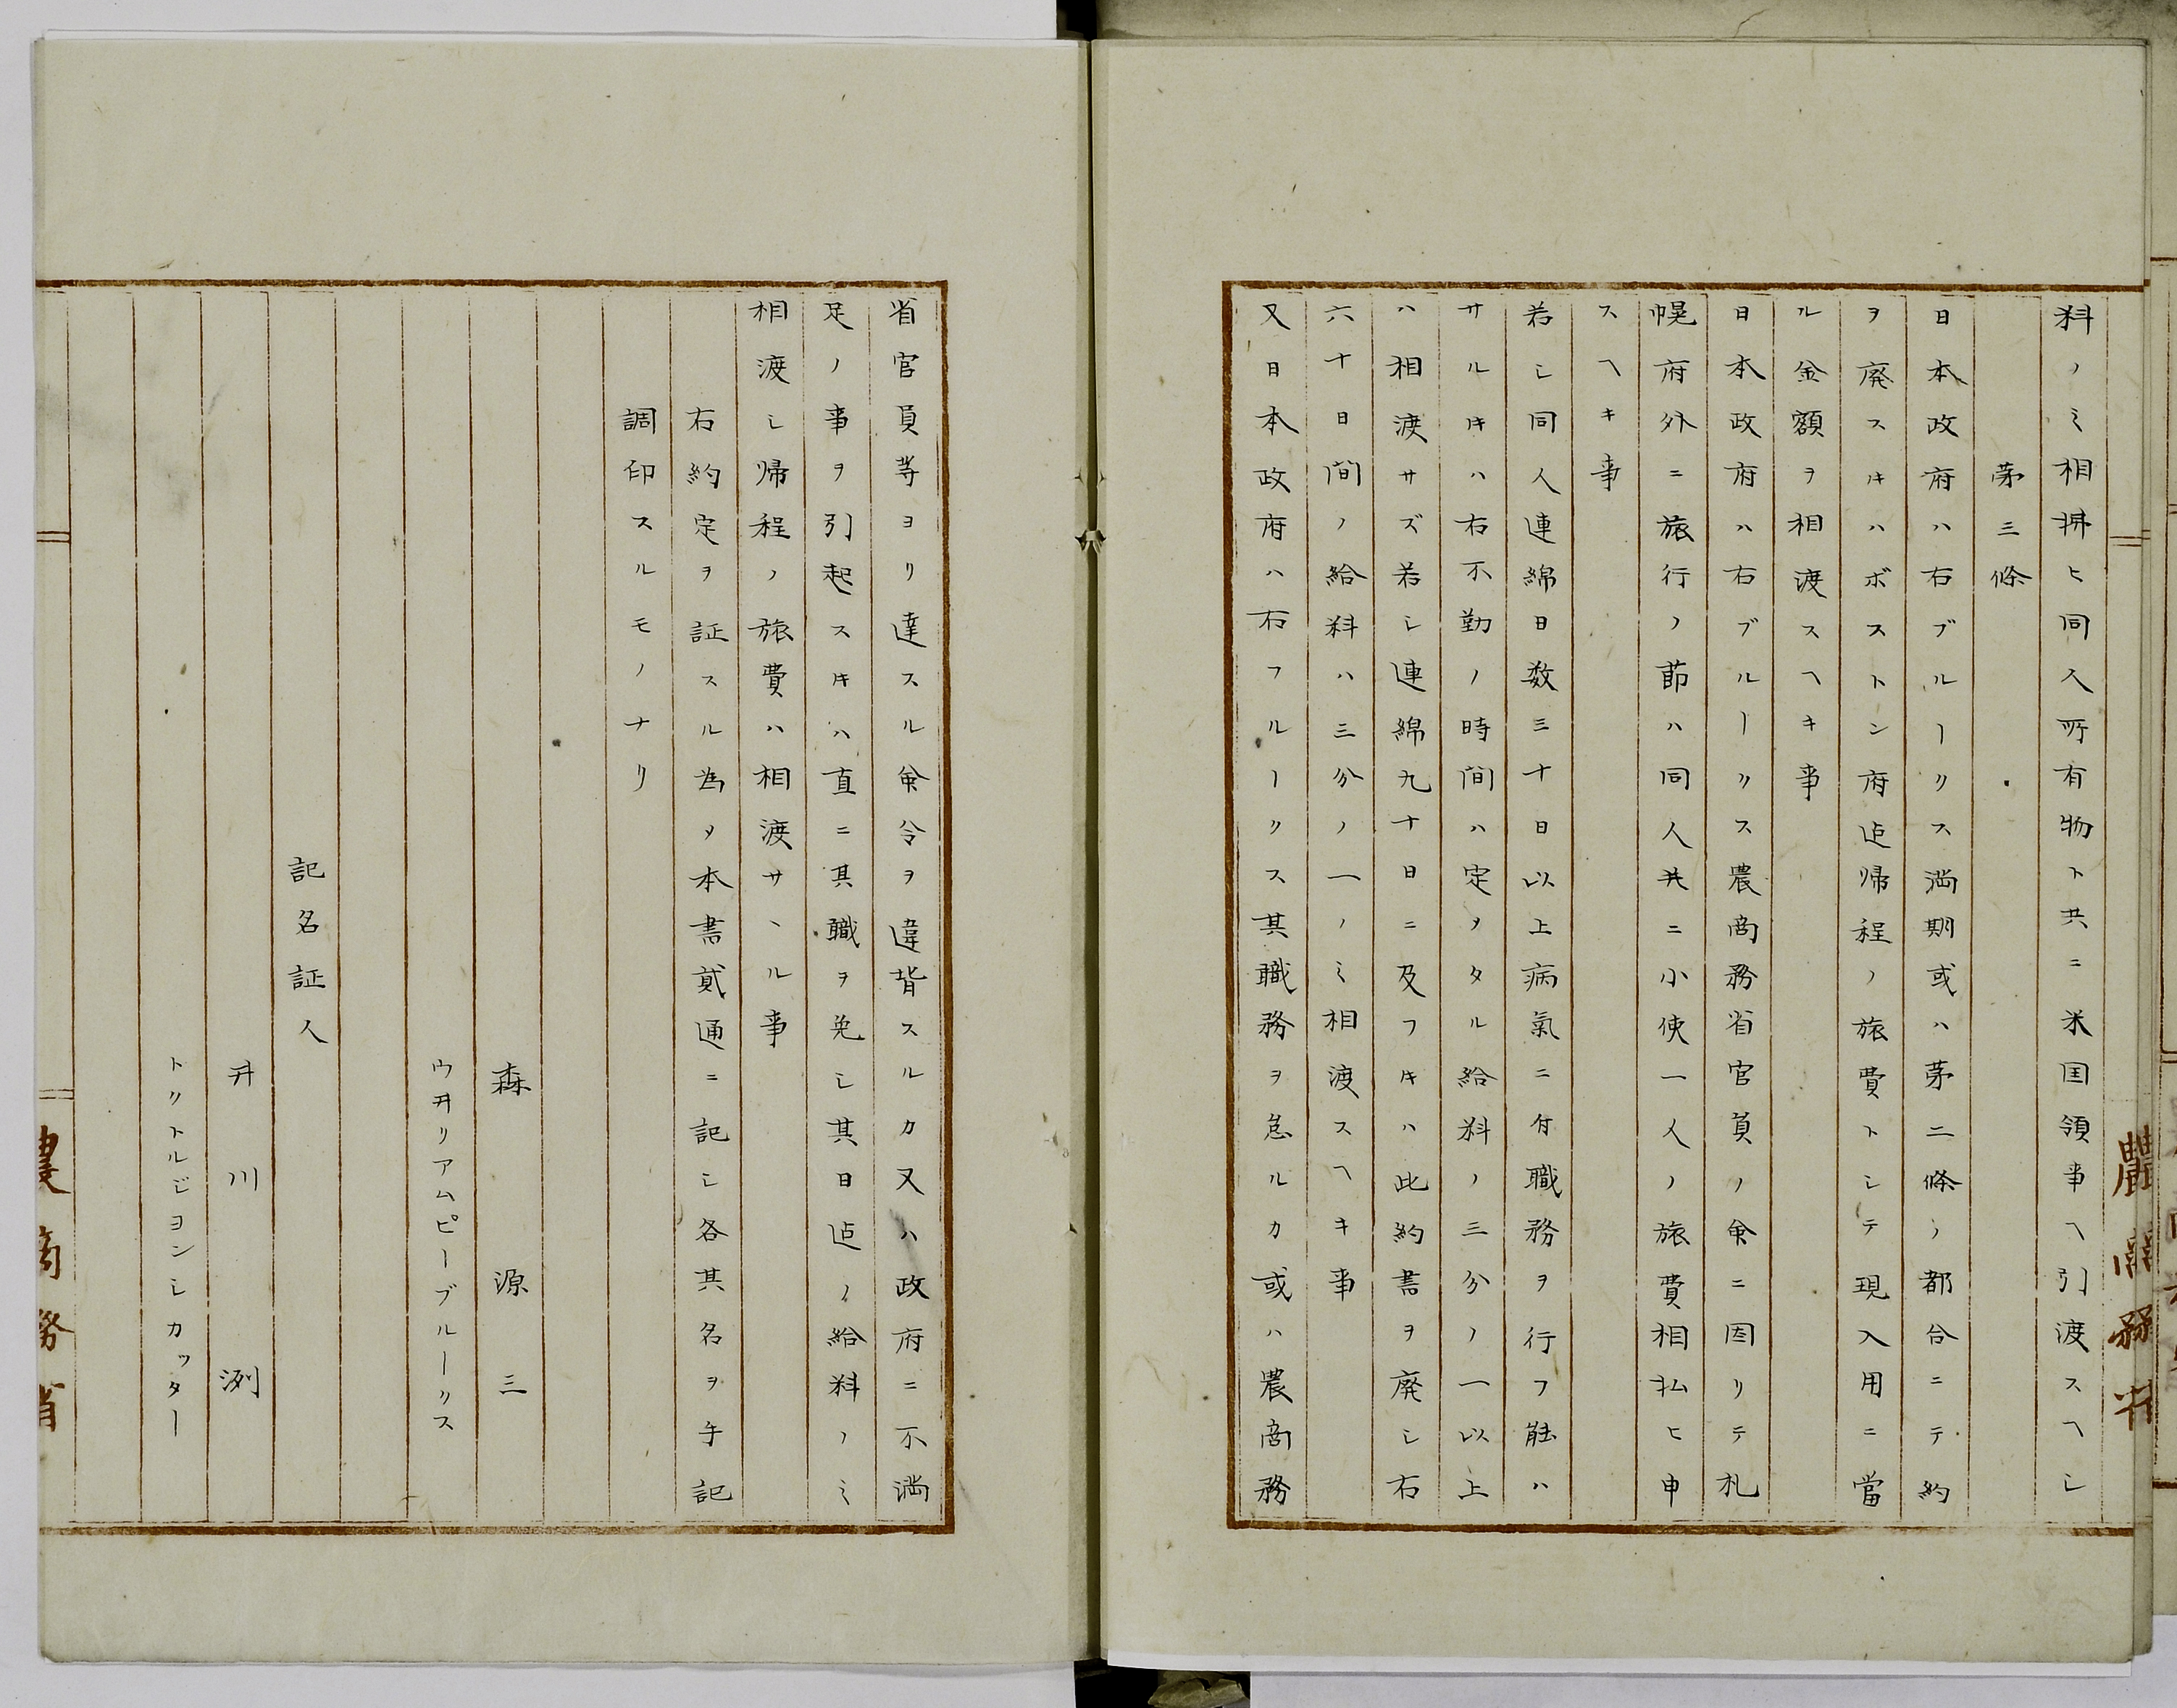 料ノミ相拂ヒ同人所有物ト共ニ米国領事ヘ引渡スヘシ
第三條
日本政府ハ右ブルークス満期或ハ第二條ノ都合ニテ約
ヲ廃スキハボストン府迠帰程ノ旅費トシテ現入用ニ當
ル金額ヲ相渡スヘキ事
日本政府ハ右ブルークス農商務省官員ノ命ニ因リテ札
幌府外ニ旅行ノ節ハ同人共ニ小使一人ノ旅費相払ヒ申
スヘキ事
若シ同人連綿日数三十日以上病氣ニ付職務ヲ行フ能ハ
サルキハ右不勤ノ時間ハ定メタル給料ノ三分ノ一以上
ハ相渡サズ若シ連綿九十日ニ及フキハ此約書ヲ廃シ右
六十日間ノ給料ハ三分ノ一ノミ相渡スヘキ事
又日本政府ハ右フルークス其職務ヲ怠ルカ或ハ農商務
農商務省
省官員等ヨリ達スル命令ヲ違背スルカ又ハ政府ニ不満
足ノ事ヲ引起スキハ直ニ其職ヲ免シ其日迠ノ給料ノミ
相渡シ帰程ノ旅費ハ相渡サヽル事
右約定ヲ証スル為メ本書貳通ニ記シ各其名ヲ手記
調印スルモノナリ
森源三
ウ井リアムピーブルークス
記名証人
井川冽
トクトルジヨンシカッター
農商務省